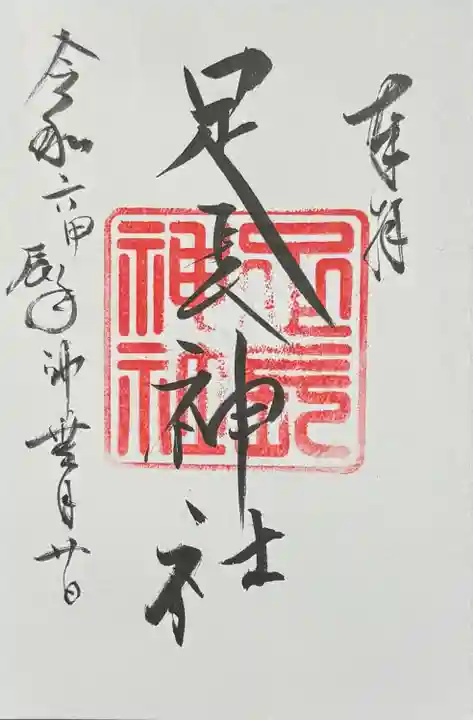 奉拝
足長神社
令和六甲辰年神無月廿日
足長
神社